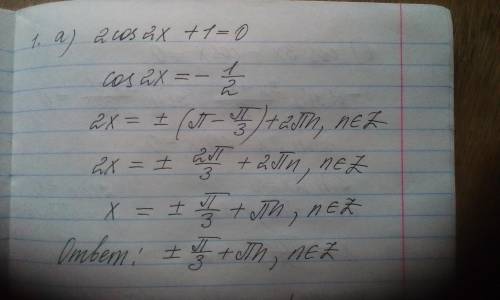 1. а) 2cos2x + 1 = 0
cos2x = - 1/2
2x = ± (π - π/3) + 2πn, n∈Z
2x = ± 2π/3 + 2πn, n∈Z
x = ± π/3 + πn, n∈Z
Ответ: ± π/3 + πn, n∈Z